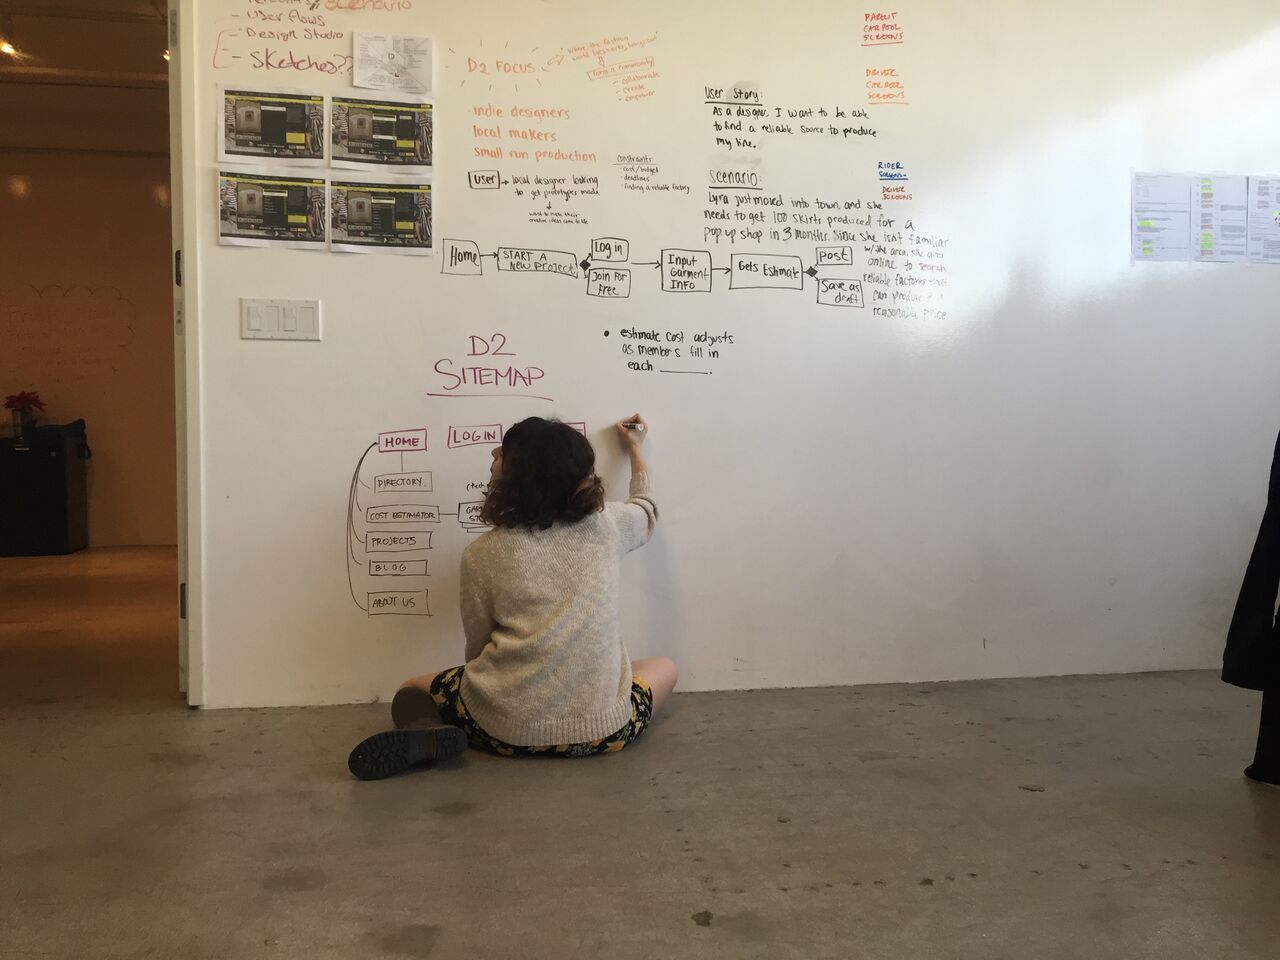 scenario
- User flows
- Design Studio
- Sketches??
D2 FOCUS
form a community
- collaborate
- create
- empower
indie designers
local makers
small run production
User → local designer looking
to get prototypes made
want to make their
creative ideas come to life
constraints
- cost/budget
- deadlines
- finding a reliable factory
User Story:
As a designer, I want to be able
to find a reliable source to produce
my line.
Scenario:
Lyra just moved into town, and she
needs to get 100 skirts produced for a
pop up shop in 3 months. Since she isn't familiar
w/ the area, she goes
online to search
reliable factories that
can produce at a
reasonable price
PARENT
CARPOOL
SCREENS
DRIVER
CARPOOL
SCREENS
RIDER
SCREENS
DRIVER
SCREENS
Home
START A
NEW PROJECT
Log in
Join For
Free
Input
Garment
INFO
Gets Estimate
post
Save as
draft
• estimate cost adjusts
as members fill in
each ____.
D2
SITEMAP
HOME
LOGIN
DIRECTORY
COST ESTIMATOR
PROJECTS
BLOG
ABOUT US